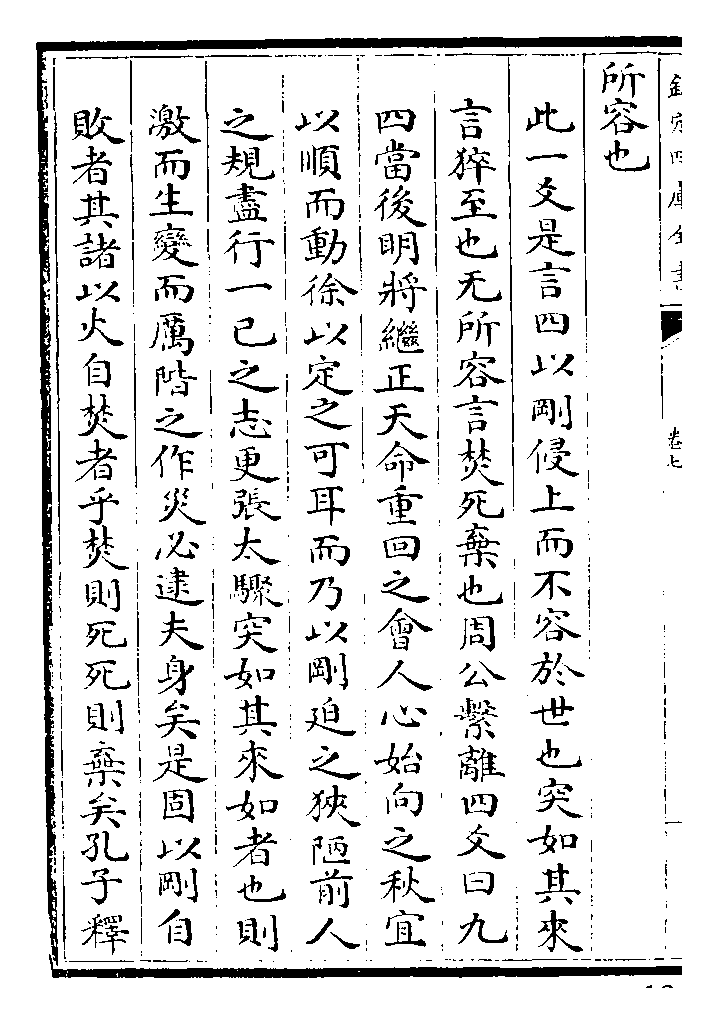 欽定四庫全書
卷七
所容也
此一爻是言四以剛侵上而不容於世也突如其來
言猝至也无所容言焚死棄也周公繫離四爻曰九
四當後明將繼正天命重回之會人心始向之秋宜
以順而動徐以定之可耳而乃以剛迫之狹陋前人
之規盡行一己之志更張太驟突如其來如者也則
激而生變而厲階之作災必逮夫身矣是固以剛自
敗者其諸以火自焚者乎焚則死死則棄矣孔子釋